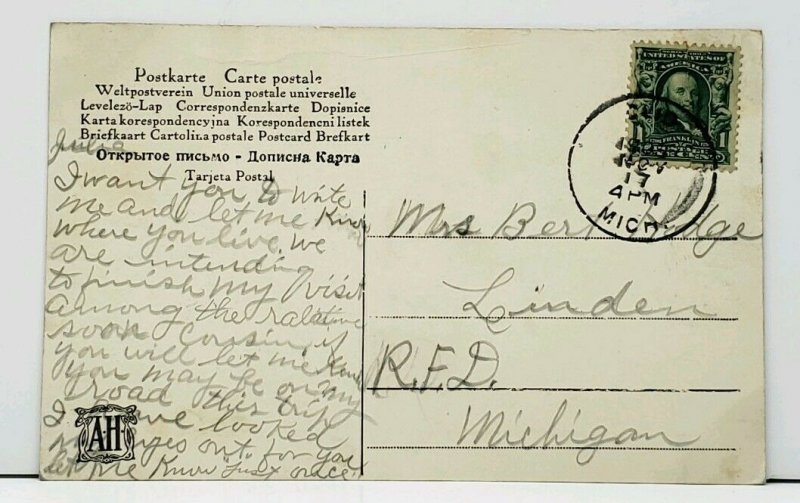 Postkarte Carte postale
Weltpostverein Union postale universelle
Levelező-Lap Correspondenzkarte Dopisnice
Karta korespondencyjna Korespondencni listek
Briefkaart Cartolina postale Postcard Brefkart
Открытое письмо - Дописна Карта
Tarjeta Postal
Julia
I want you to write
me and let me know
where you live. We
are intending
to finish my visit
among the relative
soon cousin, if
you will let me know
you may be on my
road this trip
I have looked
my eyes out for you
let me know just once
AH
UNITED STATES OF
AMERICA
FRANKLIN
POSTAGE
1 ONE CENT 1
NOV
17
4 PM
MICH.
Mrs Bert
Linden
R.F.D.
Michigan